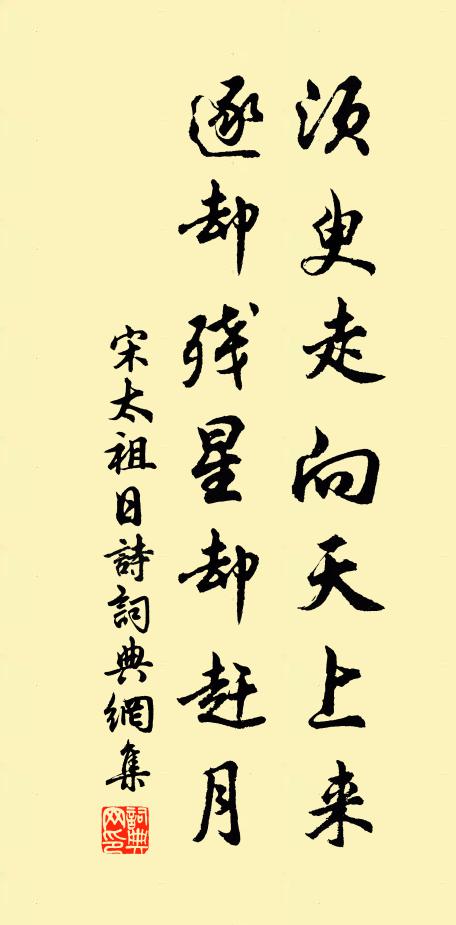 须臾走向天上来
逐却残星却赶月
宋太祖日詩詞典網集
詞典网印